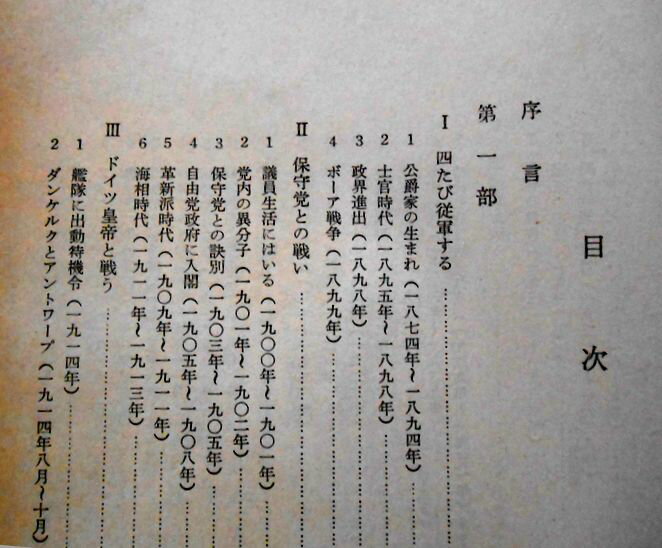 目次
序言
第一部
Ⅰ 四たび従軍する……………………
1 公爵家の生まれ(一八七四年~一八九四年)………
2 士官時代(一八九五年~一八九八年)………
3 政界進出(一八九八年)………
4 ボーア戦争(一八九九年)………
Ⅱ 保守党との戦い……………………
1 議員生活にはいる(一九〇〇年~一九〇一年)………
2 党内の異分子(一九〇一年~一九〇二年)………
3 保守党との訣別(一九〇三年~一九〇五年)………
4 自由党政府に入閣(一九〇五年~一九〇八年)………
5 革新派時代(一九〇九年~一九一一年)………
6 海相時代(一九一一年~一九一三年)………
Ⅲ ドイツ皇帝と戦う……………………
1 艦隊に出動待機令(一九一四年)………
2 ダンケルクとアントワープ(一九一四年八月~十月)